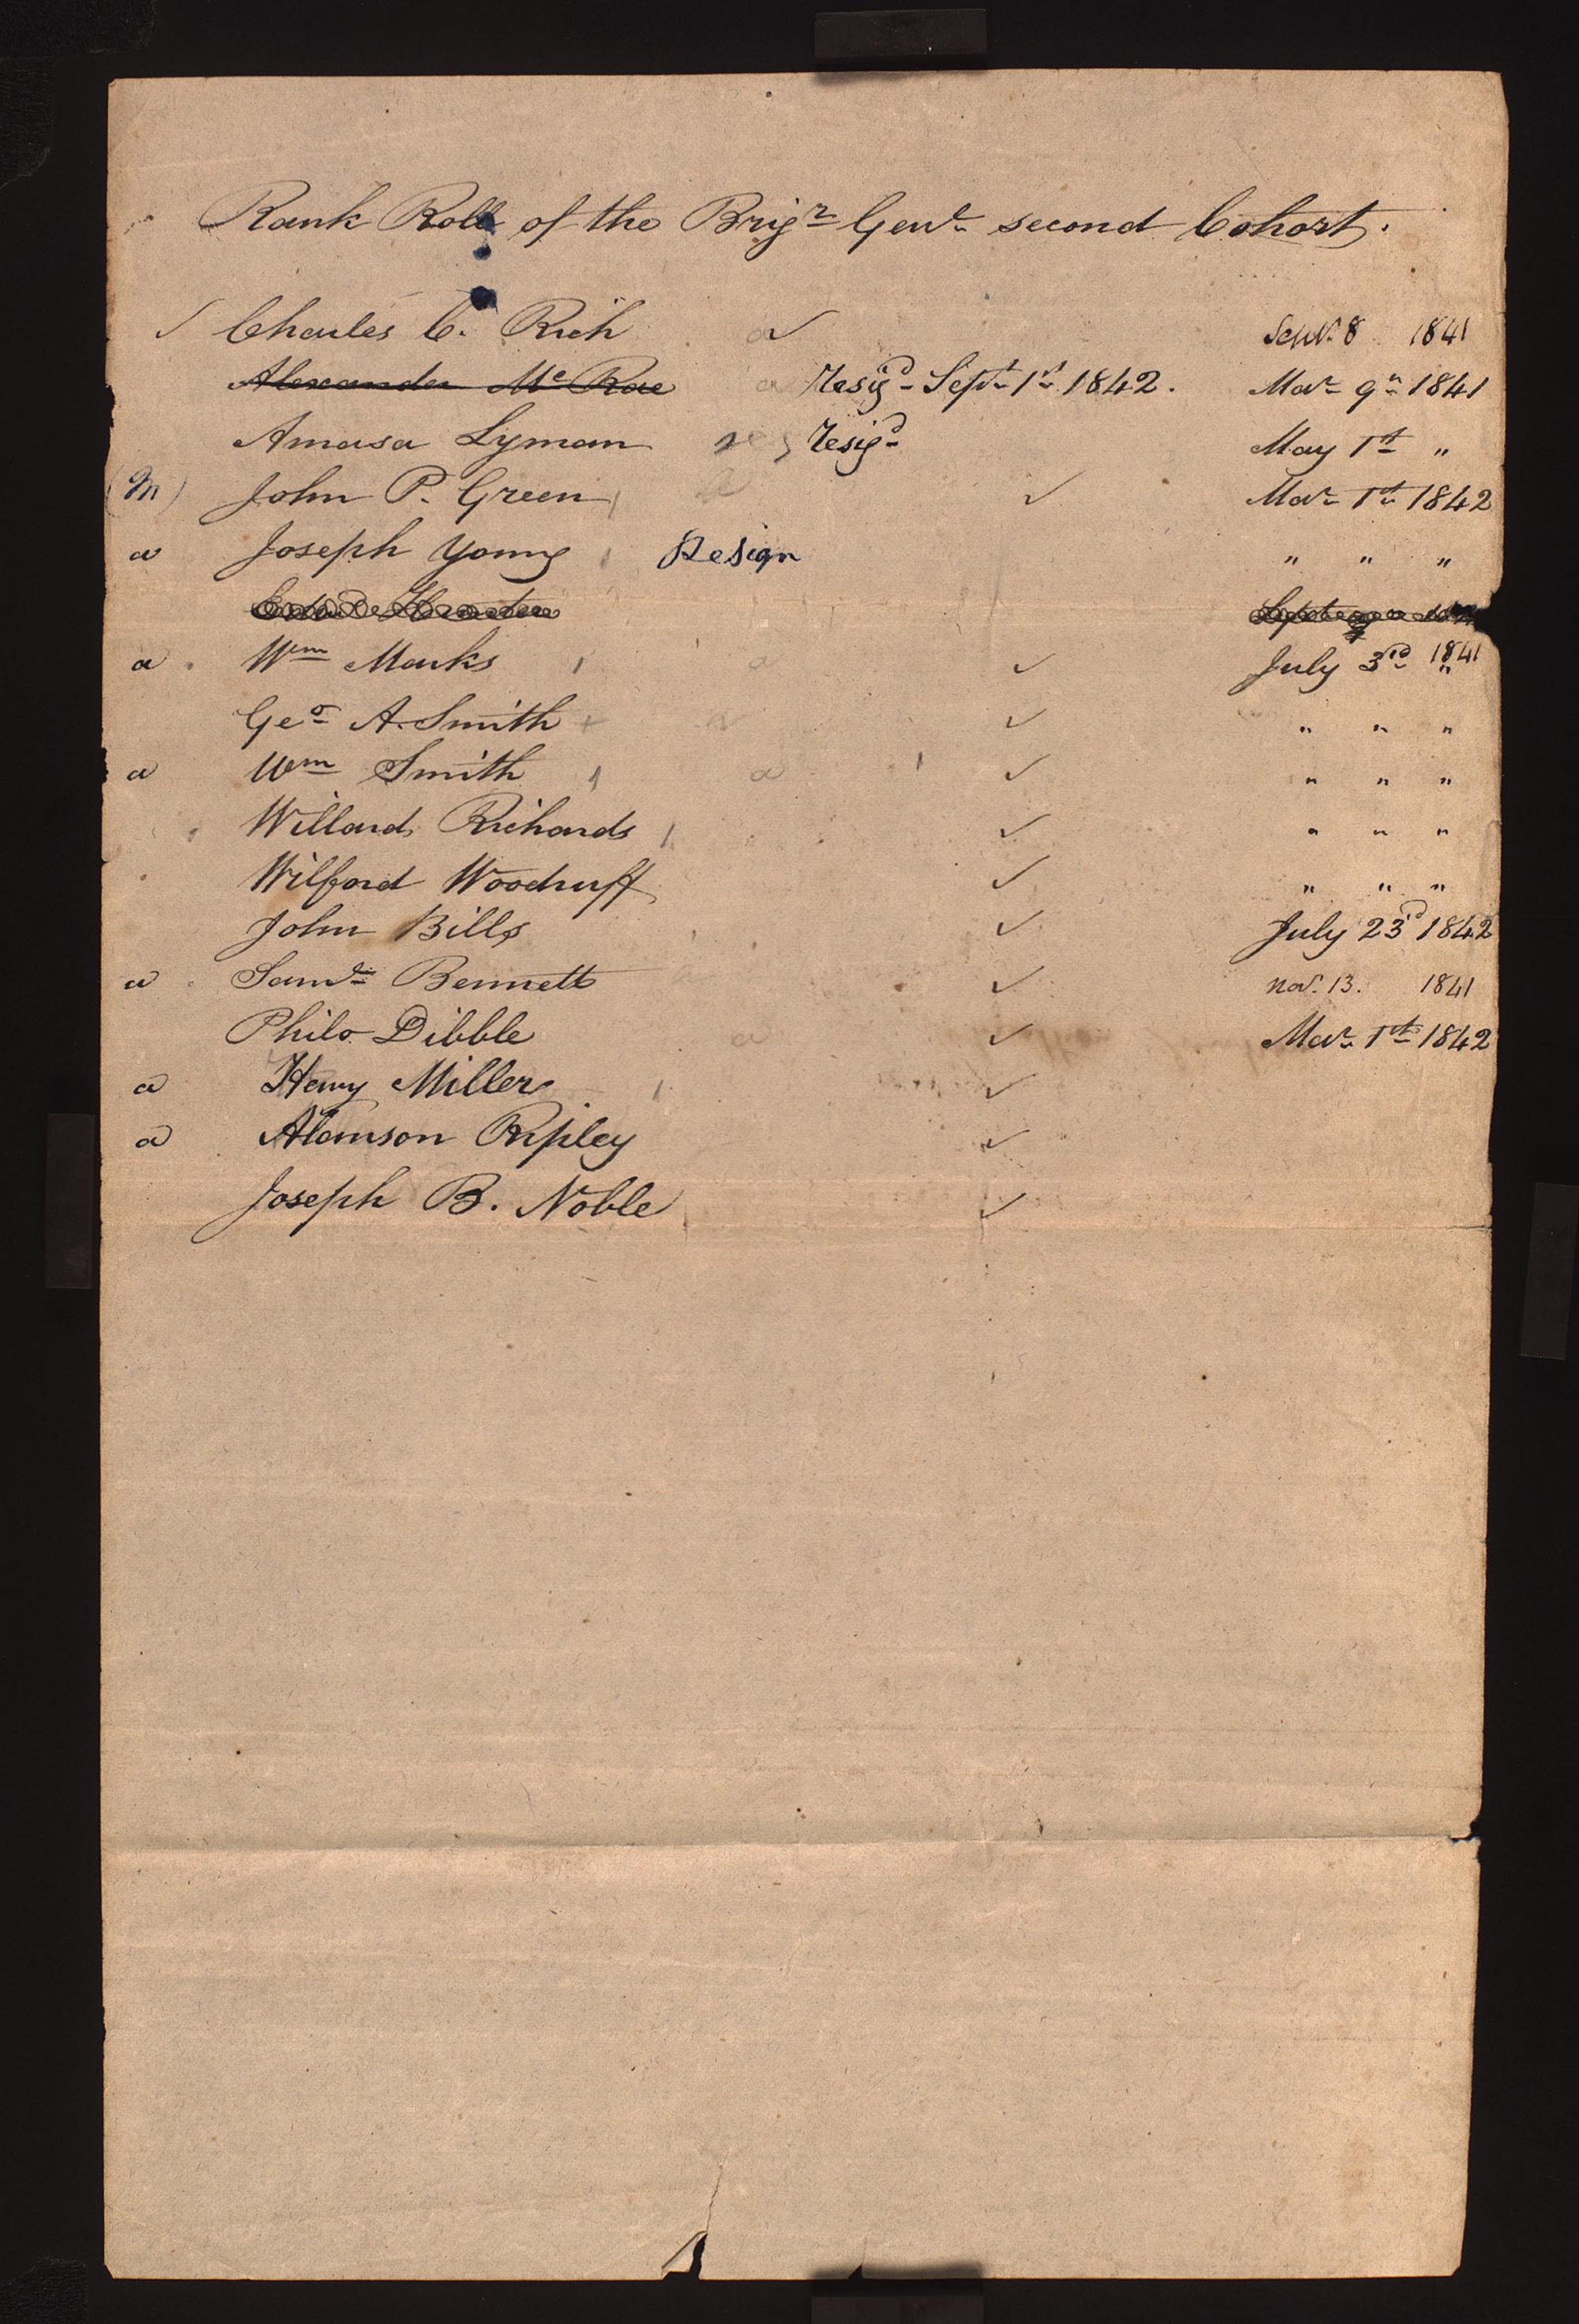 Rank Roll of the Brigr Genl second Cohort.
✓ Charles C. Rich a ✓ Sept. 8 1841
Alexander Mc Rae a resigd Sept 1st 1842. Mar 9th 1841
Amasa Lyman res resigd May 1st "
(m) John P. Green ✓ Mar 1st 1842
a Joseph Young Resign " " "
a Wm Marks a ✓ July 3rd 1841 "
Geo A. Smith ✓ " " "
a Wm Smith a ✓ " " "
Willard Richards ✓ " " "
Wilford Woodruff ✓ " " "
John Bills ✓ July 23d 1842
a Saml Bennett ✓ Nov. 13. 1841
Philo Dibble a ✓ Mar 1st 1842
a Henry Miller ✓
a Alanson Ripley ✓
Joseph B. Noble ✓